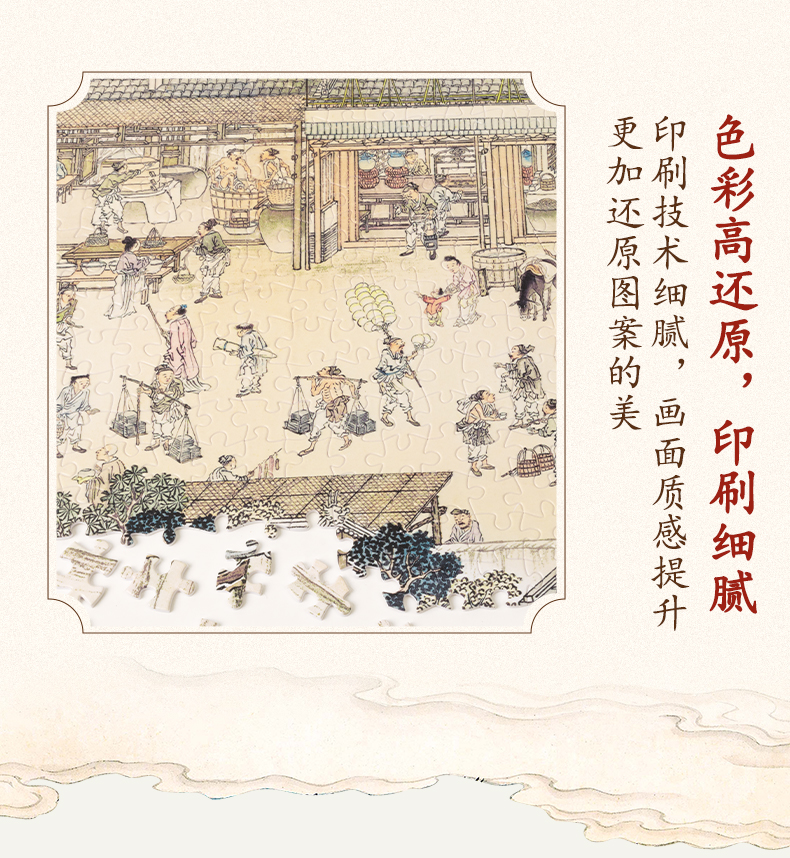 色彩高还原，印刷细腻
印刷技术细腻，画面质感提升
更加还原图案的美